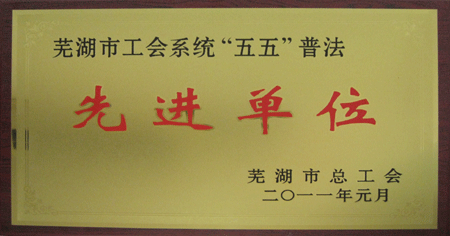 芜湖市工会系统“五五”普法
先进单位
芜湖市总工会
二〇一一年元月